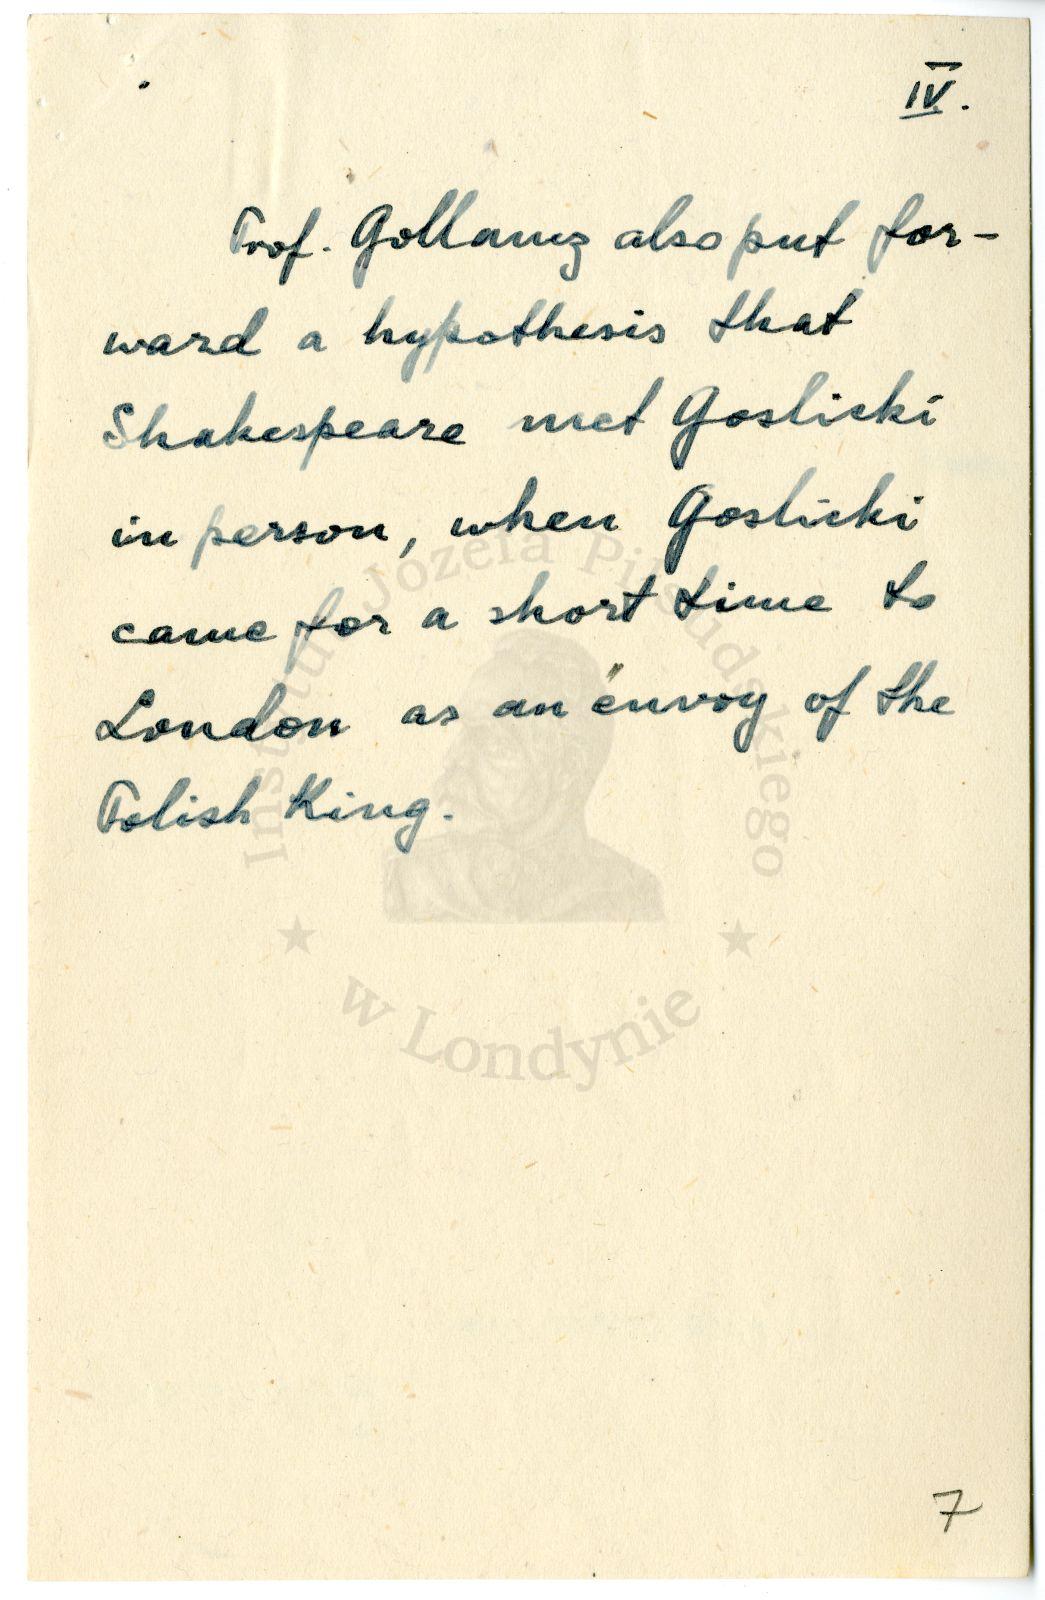 IV.
Prof. Gollanz also put for-
ward a hypothesis that
Shakespeare met Goslicki
in person, when Goslicki
came for a short time to
London as an envoy of the
Polish King.
Instytut Józefa Piłsudskiego
w Londynie
7